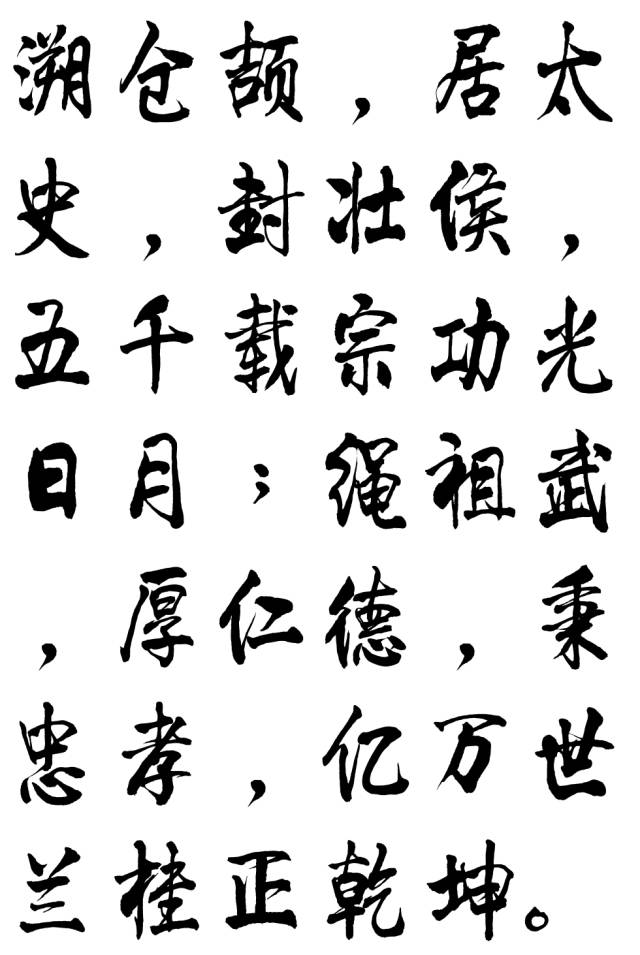 溯仓颉，居太
史，封壮侯，
五千载宗功光
日月；绳祖武
，厚仁德，秉
忠孝，亿万世
兰桂正乾坤。